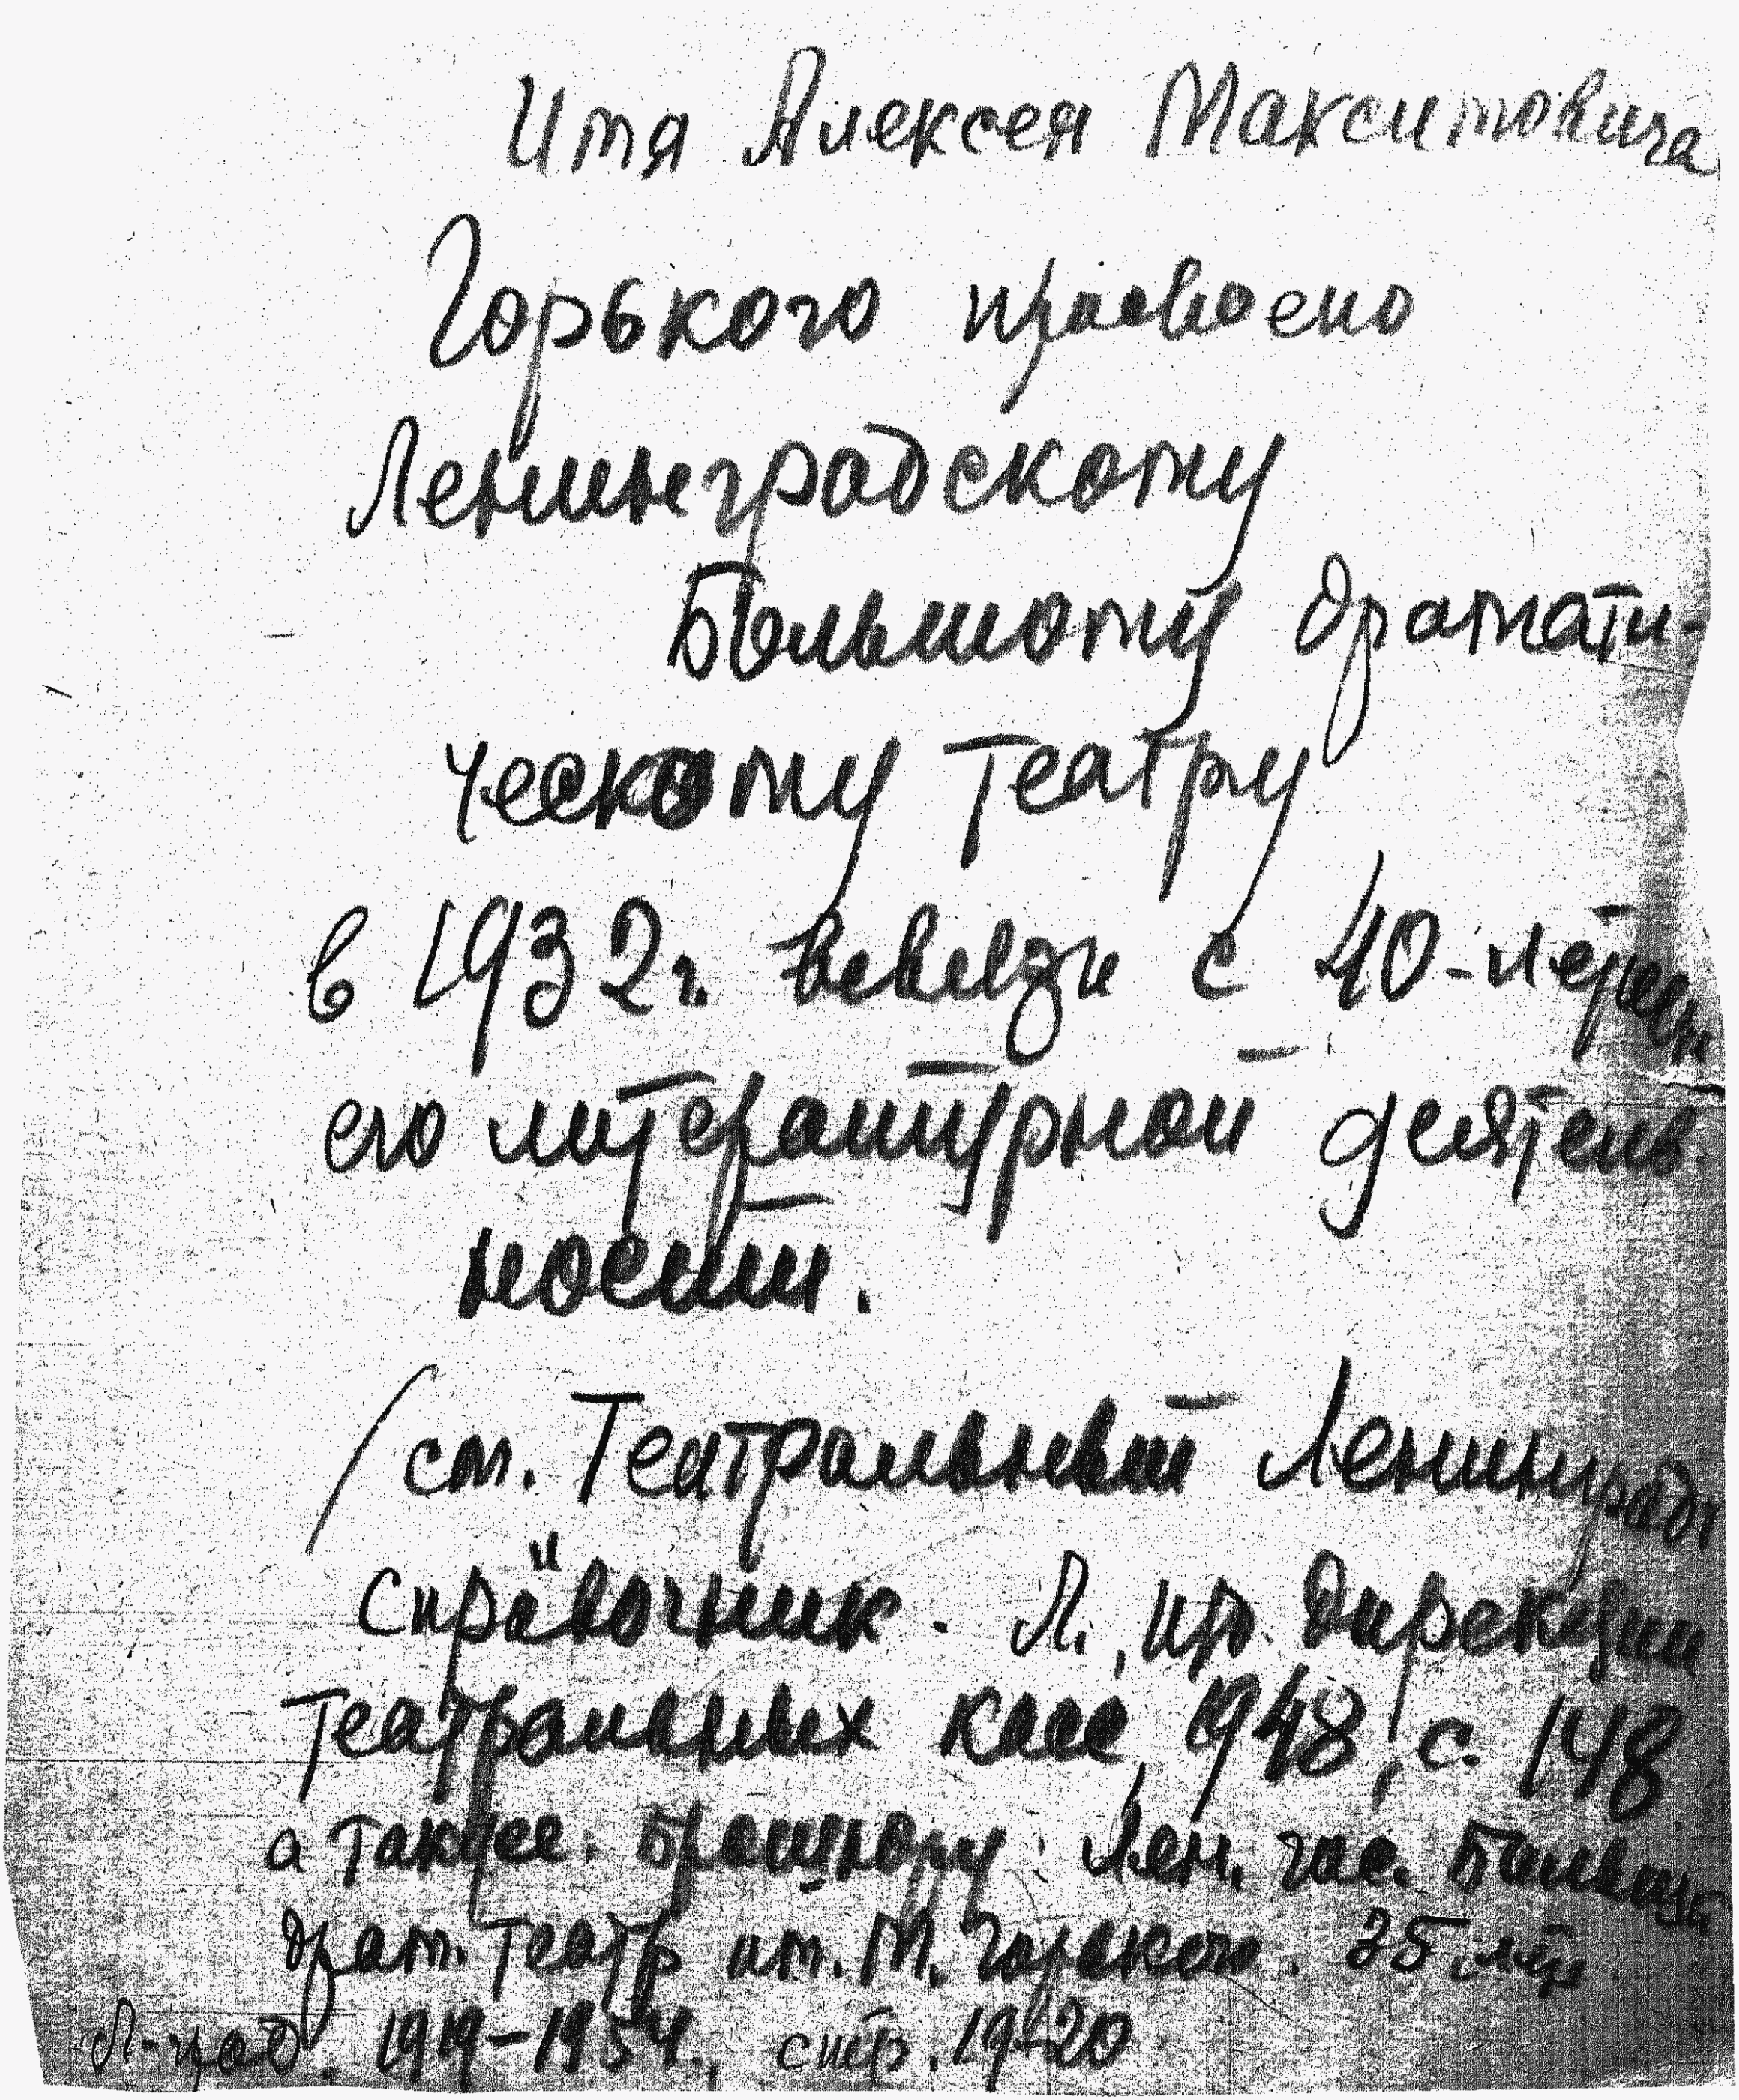 Имя Алексея Максимовича
Горького присвоено
Ленинградскому
Большому драмати-
ческому театру
в 1932 г. в связи с 40-летием
его литературной деятель
ности.
/см. Театральный Ленинград
Справочник. Л., пр. Дирекции
театральных касс, 1948, с. 148
а также. Брошюру: Лен. гос. Большой
драм. театр им. М. Горького. 35 лет
Л-град. 1919-1954., стр. 19-20